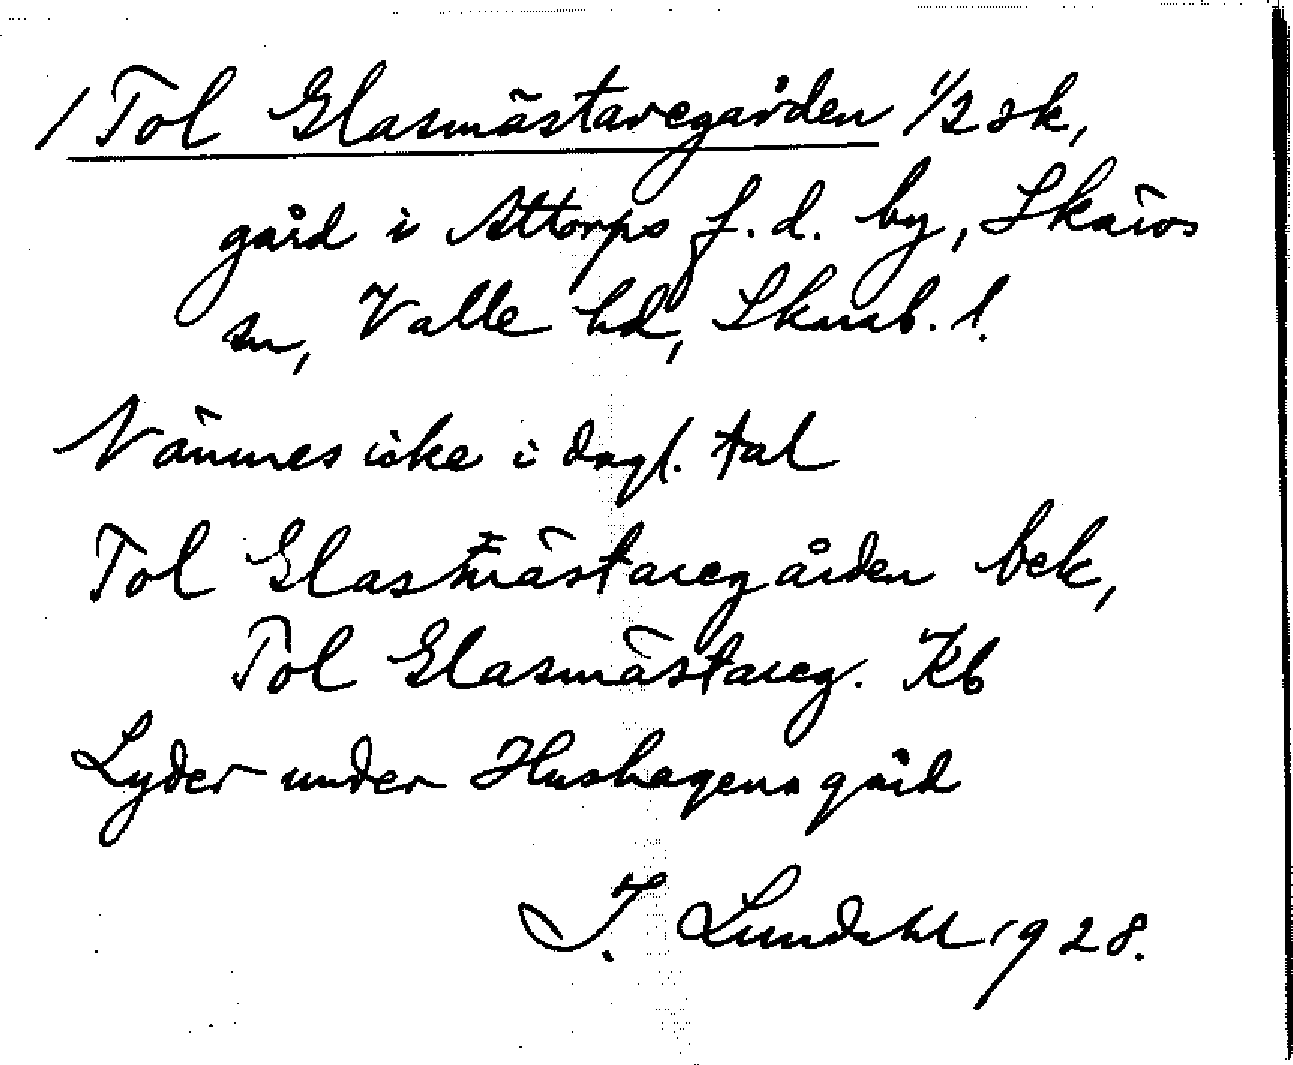 / Tol Glasmästaregården 1/2 sk,
gård i Attorps f. d. by, Skärvs
sn, Valle hd, Skarab. l.
Nämnes icke i dagl. tal
Tol Glasmästaregården bek,
Tol Glasmästareg. Kb
Lyder under Hushagens gård
I. Lundahl 1928.